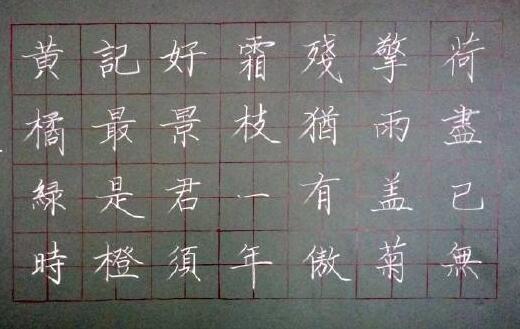 荷盡已無
擎雨盖菊
殘猶有傲
霜枝一年
好景君須
記最是橙
黄橘緑時